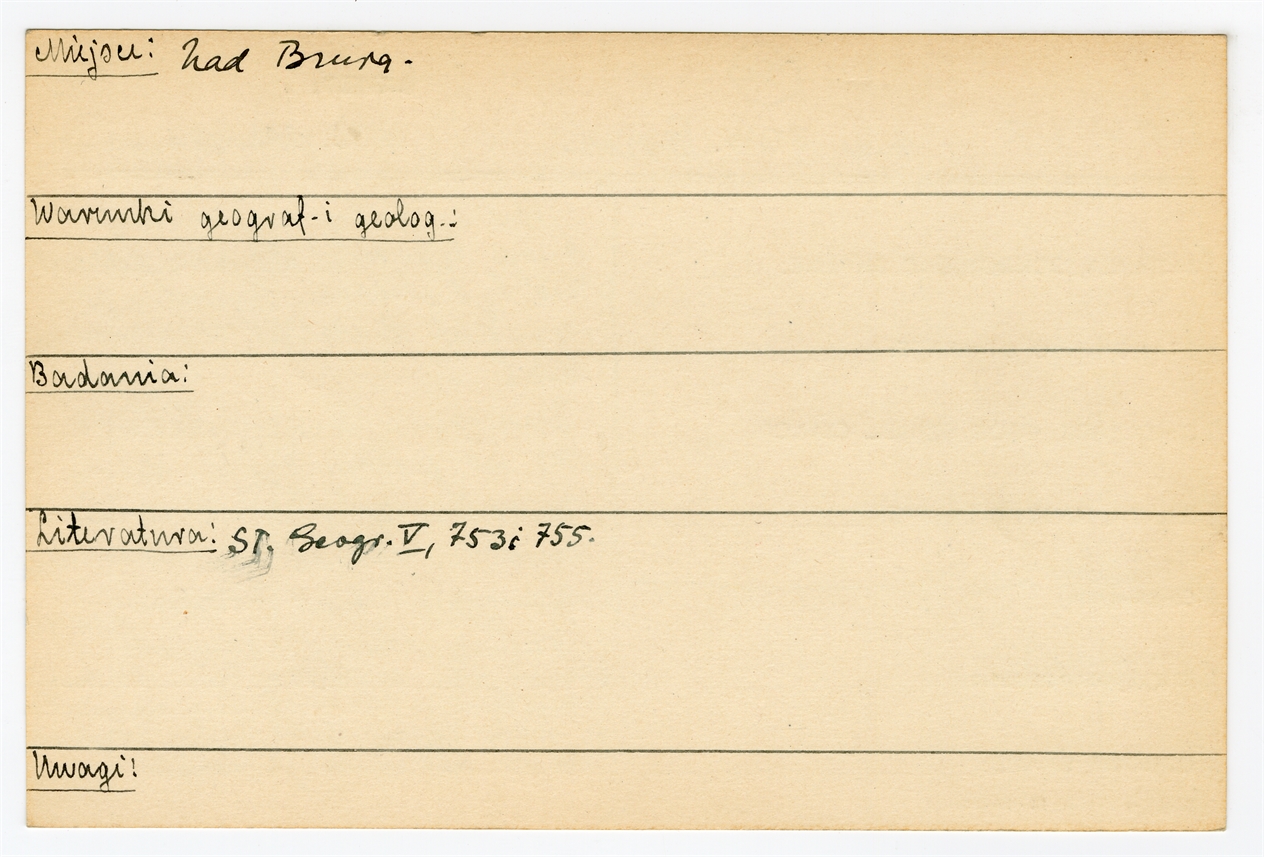 Miejsce: nad Bzurą.
Warunki geograf. i geolog.:
Badania:
Literatura: Sł. Geogr. V, 753 i 755.
Uwagi: